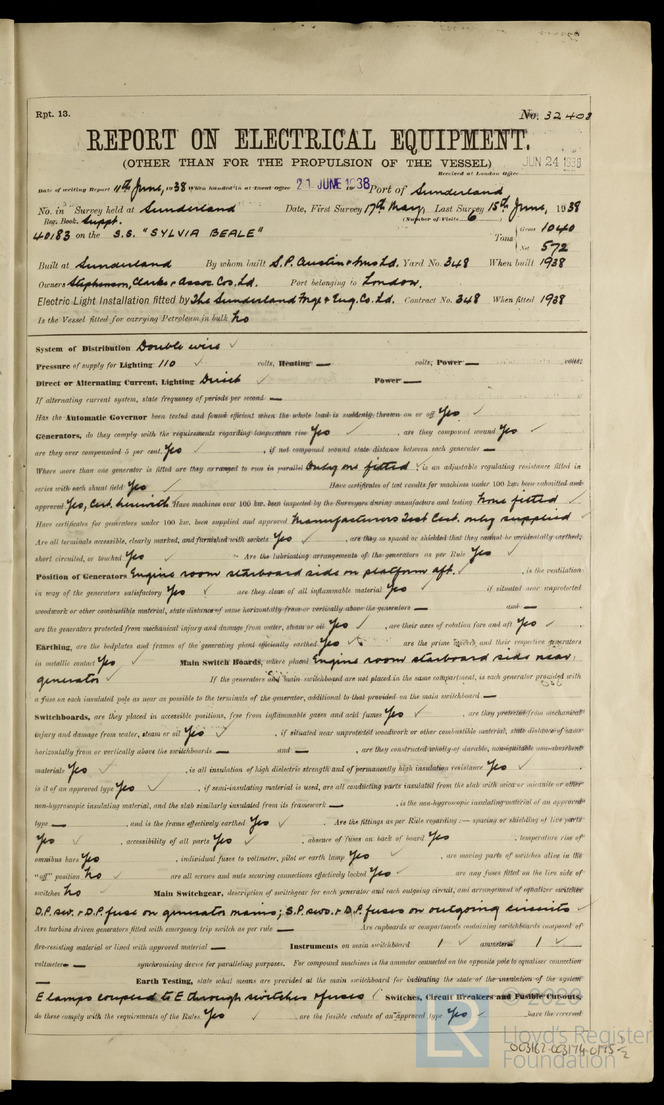 Rpt. 13. No. 32403
REPORT ON ELECTRICAL EQUIPMENT.
(OTHER THAN FOR THE PROPULSION OF THE VESSEL)
Received at London Office JUN 24 1938
Date of writing Report 11th June, 1938 When handed in at Local Office 21 JUNE 1938 Port of Sunderland
No. in Survey held at Sunderland Date, First Survey 17th May, Last Survey 15th June, 1938
Reg. Book. Suppt. (Number of Visits 6)
40183 on the S.S. "SYLVIA BEALE" Tons Gross 1040 Net 572
Built at Sunderland By whom built S.P. Austin & Sons Ld. Yard No. 348 When built 1938
Owners Stephenson, Clarke & Assoc. Cos. Ld. Port belonging to London.
Electric Light Installation fitted by The Sunderland Forge & Eng. Co. Ld. Contract No. 348 When fitted 1938
Is the Vessel fitted for carrying Petroleum in bulk No
System of Distribution Double wire ✓
Pressure of supply for Lighting 110 ✓ volts, Heating — volts; Power — volts:
Direct or Alternating Current, Lighting Direct ✓ Power —
If alternating current system, state frequency of periods per second —
Has the Automatic Governor been tested and found efficient when the whole load is suddenly thrown on or off Yes ✓
Generators, do they comply with the requirements regarding temperature rise Yes ✓, are they compound wound Yes ✓
are they over compounded 5 per cent. Yes ✓, if not compound wound state distance between each generator —
Where more than one generator is fitted are they arranged to run in parallel Only one fitted ✓, is an adjustable regulating resistance fitted in
series with each shunt field Yes ✓ Have certificates of test results for machines under 100 kw. been submitted and
approved Yes, Cert. herewith Have machines over 100 kw. been inspected by the Surveyors during manufacture and testing None fitted ✓
Have certificates for generators under 100 kw. been supplied and approved Manufacturers Test Cert. only supplied ✓
Are all terminals accessible, clearly marked, and furnished with sockets Yes ✓, are they so spaced or shielded that they cannot be accidentally earthed,
short circuited, or touched Yes ✓ Are the lubricating arrangements of the generators as per Rule Yes ✓
Position of Generators Engine room starboard side on platform aft. ✓, is the ventilation
in way of the generators satisfactory Yes ✓ are they clear of all inflammable material Yes ✓ if situated near unprotected
woodwork or other combustible material, state distance of same horizontally from or vertically above the generators — and —
are the generators protected from mechanical injury and damage from water, steam or oil Yes ✓, are their axes of rotation fore and aft Yes ✓
Earthing, are the bedplates and frames of the generating plant efficiently earthed Yes ✓ are the prime movers and their respective generators
in metallic contact Yes ✓ Main Switch Boards, where placed Engine room starboard side near
generator ✓ If the generators and main switchboard are not placed in the same compartment, is each generator provided with
a fuse on each insulated pole as near as possible to the terminals of the generator, additional to that provided on the main switchboard —
Switchboards, are they placed in accessible positions, free from inflammable gases and acid fumes Yes ✓, are they protected from mechanical
injury and damage from water, steam or oil Yes ✓, if situated near unprotected woodwork or other combustible material, state distance of same
horizontally from or vertically above the switchboards — and —, are they constructed wholly of durable, non-ignitable non-absorbent
materials Yes ✓, is all insulation of high dielectric strength and of permanently high insulation resistance Yes ✓
is it of an approved type Yes ✓, if semi-insulating material is used, are all conducting parts insulated from the slab with mica or micanite or other
non-hygroscopic insulating material, and the slab similarly insulated from its framework —, is the non-hygroscopic insulating material of an approved
type —, and is the frame effectively earthed Yes ✓ Are the fittings as per Rule regarding:— spacing or shielding of live parts
Yes ✓, accessibility of all parts Yes ✓, absence of fuses on back of board Yes, temperature rise of
omnibus bars Yes, individual fuses to voltmeter, pilot or earth lamp Yes ✓, are moving parts of switches alive in the
"off" position No ✓ are all screws and nuts securing connections effectively locked Yes ✓ are any fuses fitted on the live side of
switches No ✓ Main Switchgear, description of switchgear for each generator and each outgoing circuit, and arrangement of equalizer switches
D.P. sw. & D.P. fuse on generator mains; S.P. sws. & D.P. fuses on outgoing circuits ✓
Are turbine driven generators fitted with emergency trip switch as per rule — Are cupboards or compartments containing switchboards composed of
fire-resisting material or lined with approved material — Instruments on main switchboard 1 ✓ ammeters 1 ✓
voltmeters — synchronising device for paralleling purposes. For compound machines is the ammeter connected on the opposite pole to equaliser connection
— Earth Testing, state what means are provided at the main switchboard for indicating the state of the insulation of the system
E lamps coupled to E through switches & fuses ✓ Switches, Circuit Breakers and Fusible Cut-outs,
do these comply with the requirements of the Rules Yes ✓, are the fusible cutouts of an approved type Yes ✓, have the reversed
© 2020
LR Lloyd's Register
Foundation
003162-003174-0175 1/2